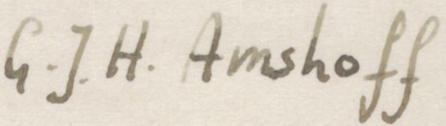 G.J.H. Amshoff